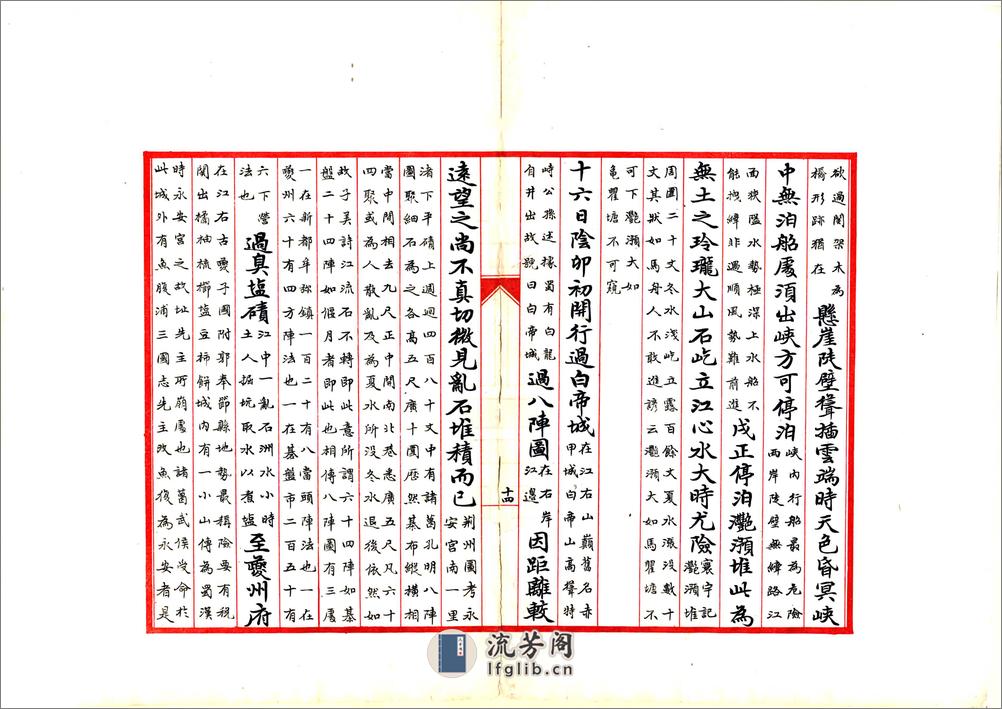 欲過閣架木為
橋形跡猶在
懸崖陡壁聳插雲端時天色昏冥峽
中無泊船處須出峽方可停泊
峽內行船最為危險
兩岸陡壁無縴路江
而狹隘水勢極深上水船不
能拽縴非遇順風勢難前進
戌正停泊灩澦堆此為
無土之玲瓏大山石屹立江心水大時尤險
寰宇記
灩澦堆
周圍二十丈冬水淺屹立露百餘丈夏水漲沒數十
丈其狀如馬舟人不敢進諺云灩澦大如馬瞿塘不
可下灩澦大如
龜瞿塘不可窺
十六日陰卯初開行過白帝城
在江右山巔舊名赤
甲城白帝山高聳特
時公孫述據蜀有白龍
自井出故號曰白帝城
過八陣圖
在右岸
江邊
因距離較
十四
遠望之尚不真切微見亂石堆積而已
荆州圖考永
安宮南一里
渚下平磧上週迴四百八十丈中有諸葛孔明八陣
圖聚細石為之各高五尺廣十圍歷然碁布縱橫相
當中間相去九尺正中間南北巷悉廣五尺凡六十
四聚或為人散亂及為夏水所沒冬水退後依然如
故子美詩江流石不轉即此意所謂六十四陣如碁
盤二十四陣如偃月者即此也相傳八陣圖有三處
一在新都牟彌鎮一百二十有八當頭陣法也一在
夔州六十有四方陣法也一在碁盤市二百五十有
六下營
法也
過臭塩磧
江中一亂石洲水小時
土人掘坑取水以煮塩
至夔州府
在江右古夔子國附郭奉節縣地勢最稱險要有税
関出橘柚梳櫛塩豆柿餅城內有一小山傳為蜀漢
時永安宮之故址先主所崩處也諸葛武侯受命於
此城外有魚腹浦三國志先主改魚復為永安者是
流芳阁
lfglib.cn